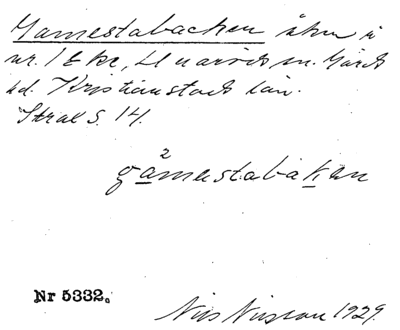 Gamestabacken åker i
nr. 1 Eke, Hnaröds sn. Gärds
hd. Kristianstads län.
Skål S. 14.
gåmestabakan
Nr 5332.
Nils Nilsson 1929.